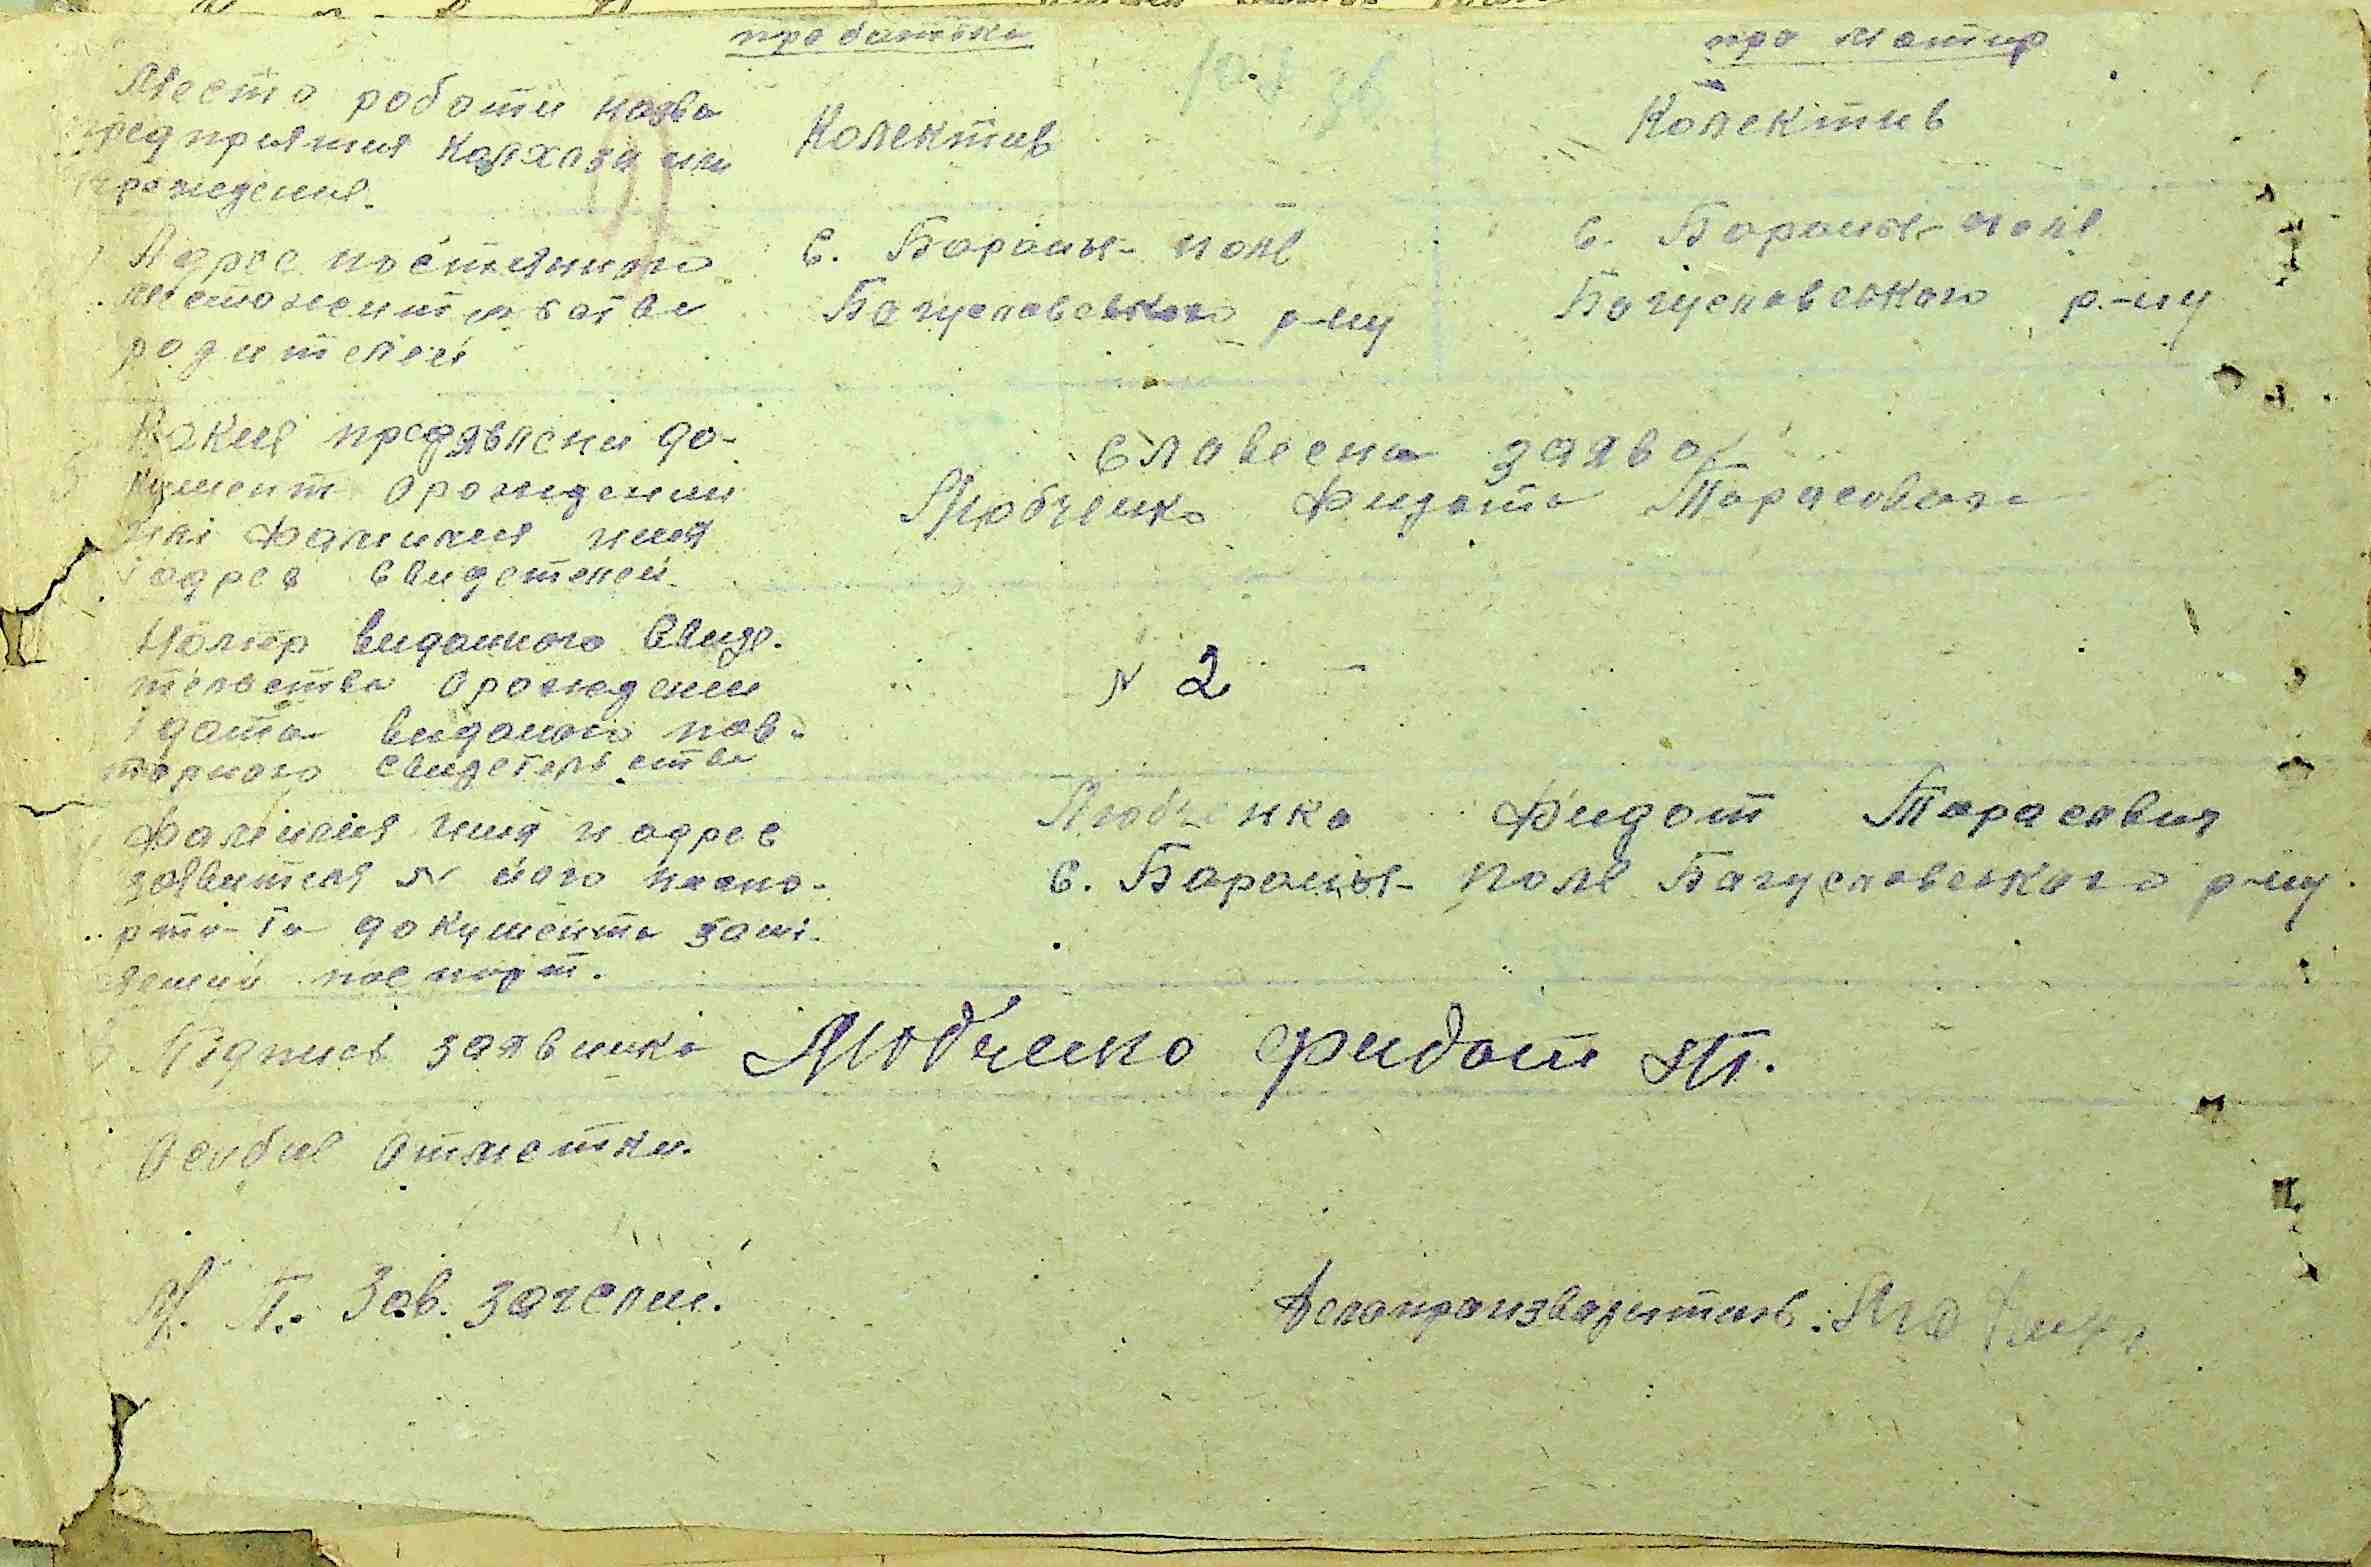 про батька
про матир
Место роботи назва
предприятия колхоза или
учреждения.
Колектив
Колектив
Адрес постоянного
местожительства
родителей
с. Бараня-поле
Багуславського р-ну
с. Бараня-поле
Багуславського р-ну
Какия предявлени до-
кумент орождении
или фамилия имя
и адрес свидетелей.
Славесна заява
Любченко Фидота Тарасовича
Номер виданого свиде-
тельства орождении
і дата виданого пов-
торного свидетельства
№ 2
Фамилия имя и адрес
заявителя № його паспо-
рта та документа замі-
няемий паспорт.
Любченко Фидот Тарасович
с. Бараня-поле Багуславського р-ну.
Підпись заявника Любченко Фидот Т.
Особие отметки.
М. П. Зав. загсом.
Делапроизвадитиль: